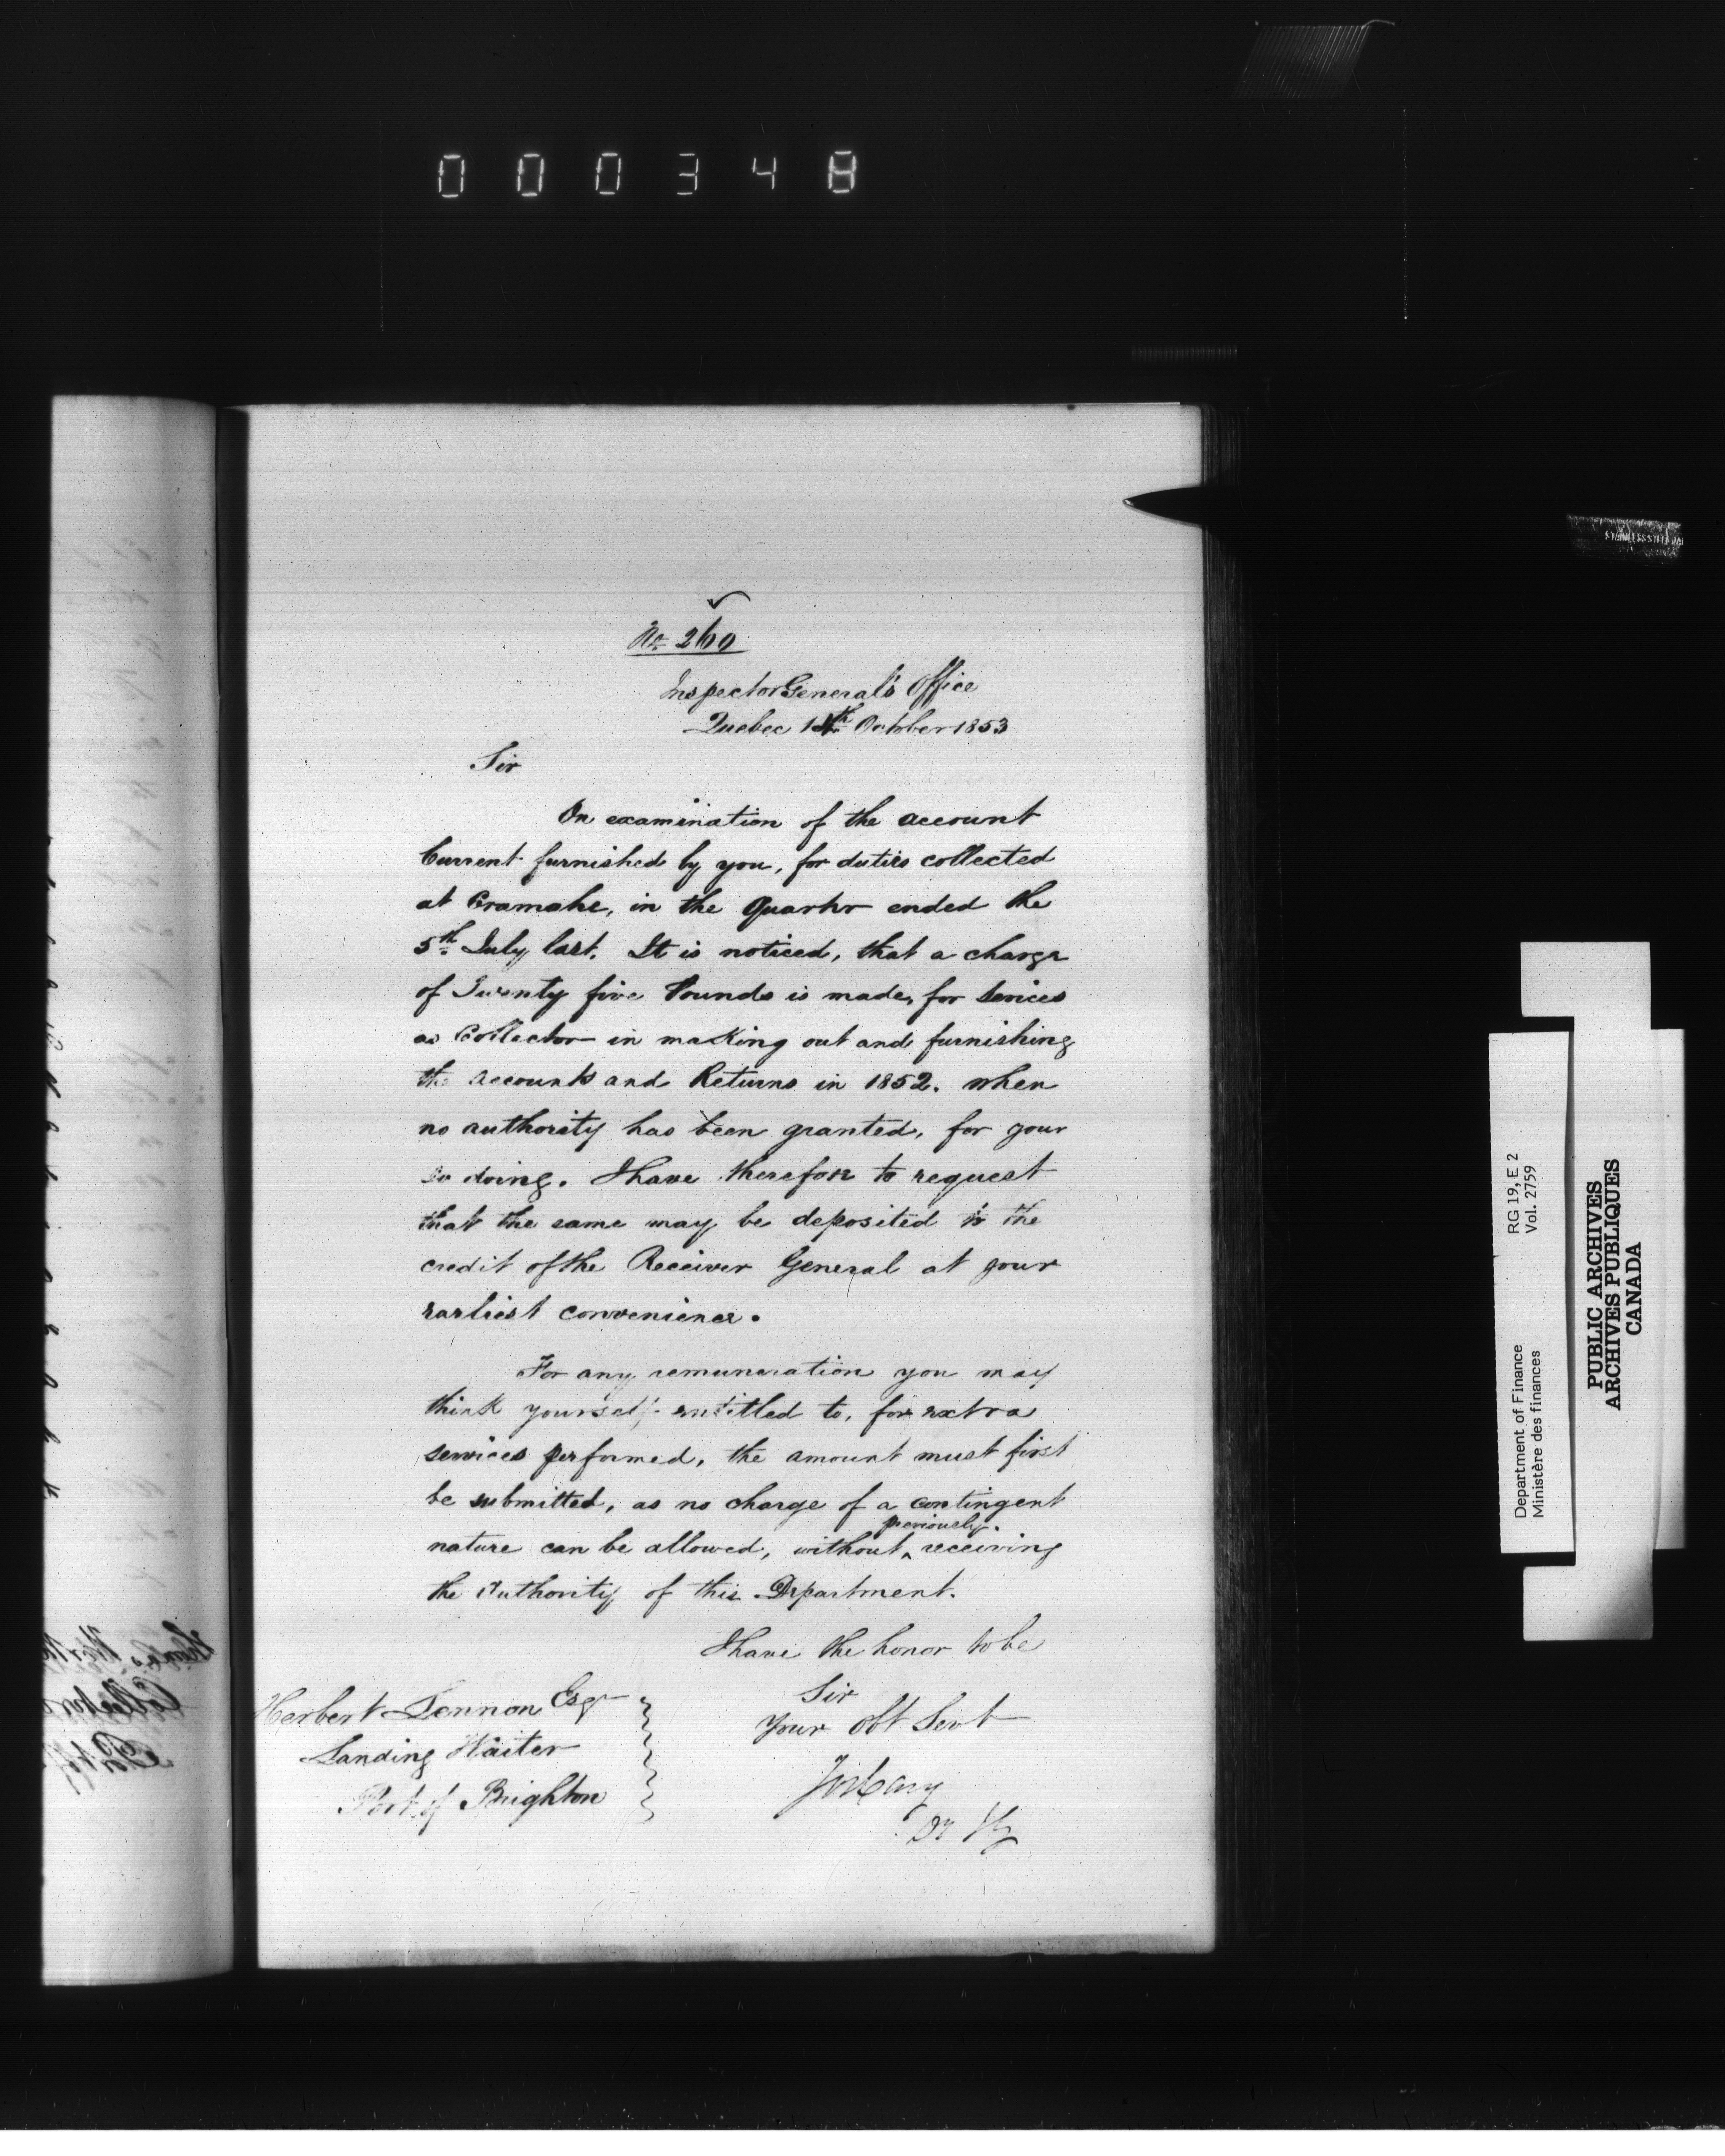 000348
No 260
Inspector General's Office
Quebec 14th October 1853
Sir
On examination of the account
Current furnished by you, for duties collected
at Cramahe, in the Quarter ended the
5th July last. It is noticed, that a charge
of Twenty five Pounds is made, for Sevices
as Collector in making out and furnishing
the accounts and Returns in 1852. when
no authority has been granted, for your
so doing. I have therefore to request
that the same may be deposited to the
credit of the Receiver General at your
earliest convenience.
For any remuneration you may
think yourself entitled to, for extra
services performed, the amount must first
be submitted, as no charge of a contingent
previously
nature can be allowed, without ^ receiving
the Authority of this Department.
I have the honor to be
Sir
Your Obt Servt
Herbert Lennon Esqr
Landing Waiter
Port of Brighton
Department of Finance RG 19, E 2
Ministère des finances Vol. 2759
PUBLIC ARCHIVES
ARCHIVES PUBLIQUES
CANADA